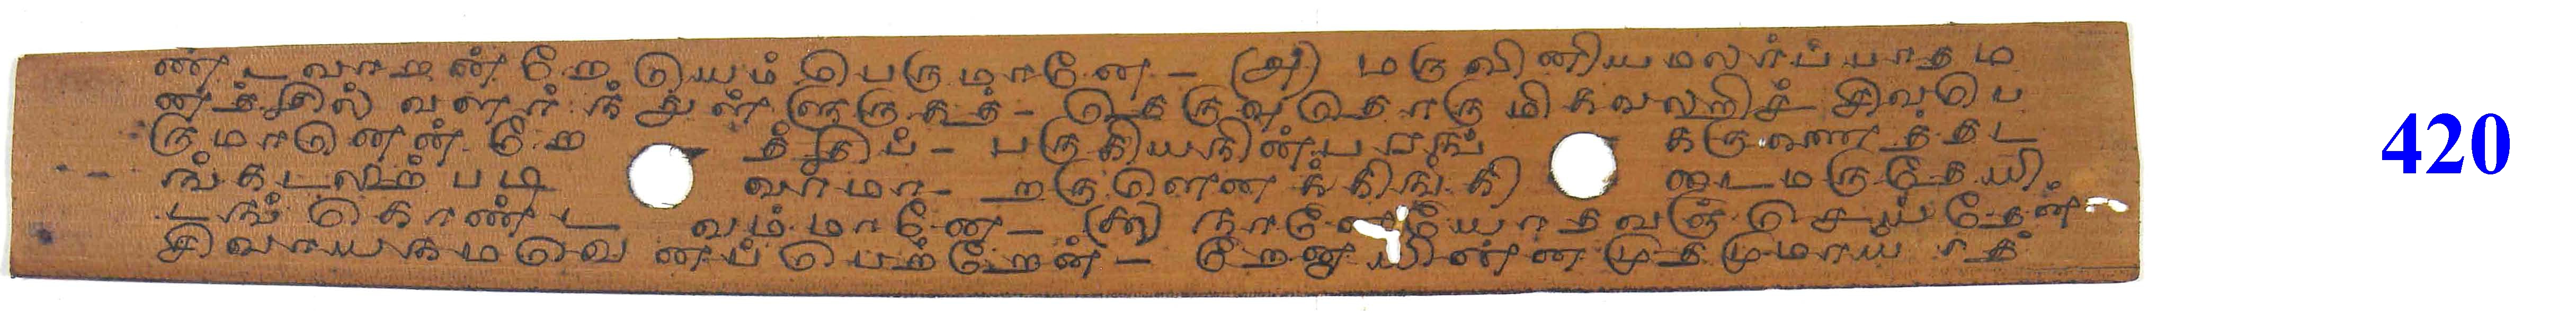 ண்டவாறன்றே யெம்பெருமானே - (அ) மருவினியமலர்ப்பாதம
னத்தில் வளர்ந்துள்ளுருகத் - தெருவுதொருமிகவலறிச் சிவபெ
ருமானென்றே த்திப் - பருகியநின்பரங் கருணைத்தட
ங்கடலிற்படி வாமா - றருளெனக்கிங்கி டைமருதேயி
டங்கொண்ட வம்மானே - (௯) நானேயோதவஞ்செய்தேன்
சிவாயநமவெ னப்பெற்றேன் - றேனாயின்னமுதமுமாய் த்
420